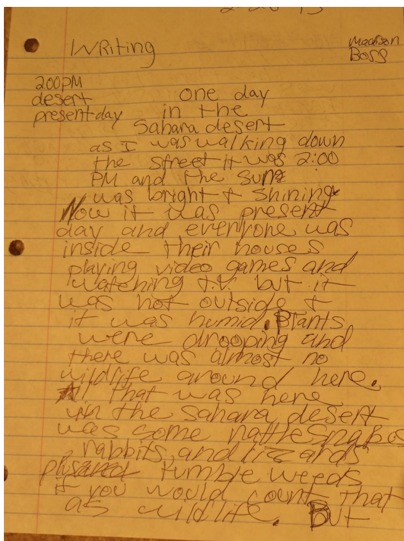 Writing
Madison
Boss
2:00PM
desert
present-day
one day
in the
Sahara desert
as I was walking down
the street it was 2:00
PM and the sun
was bright + shining
Now it was present
day and everyone was
inside their houses
playing video games and
watching t.v. but it
was hot outside +
it was humid. Plants
were drooping and
there was almost no
wildlife around here.
that was here
in the Sahara desert
was some rattlesnakes
rabbits, and lizards
plus tumble weeds
if you would count that
as wildlife. But